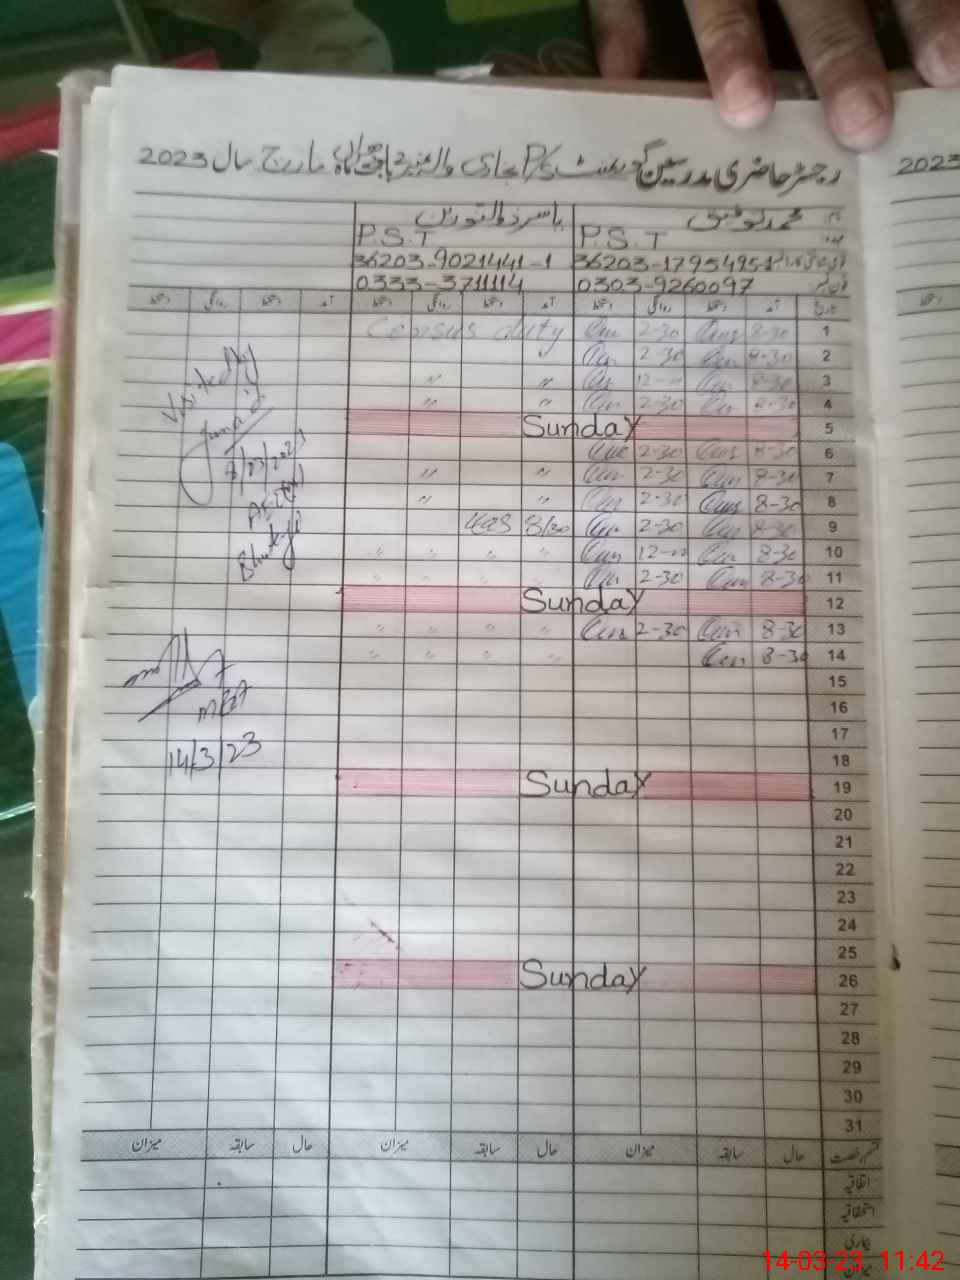 رجسٹر حاضری مدرسین گورنمنٹ P/S بھاری والہ ماہ مارچ سال 2023
2023
نام محمد توفیق یاسر ذوالنورین
P.S.T P.S.T
36203-1795495-1 36203-9021441-1
0303-9260097 0333-3711114
تاریخ آمد دستخط روانگی دستخط آمد دستخط روانگی دستخط آمد دستخط روانگی دستخط
1 8-30 2-30 Census duty
2 8-30 2-30
3 8-30 12-00 " "
4 8-30 2-30 " "
5 Sunday
6 8-30 2-30
7 8-30 2-30 " "
8 8-30 2-30 " "
9 8-30 2-30 8/30
10 8-30 12-00 " " " "
11 8-30 2-30 " " " "
12 Sunday
13 8-30 2-30 " " " "
14 8-30 " " " "
15
16
17
18
19 Sunday
20
21
22
23
24
25
26 Sunday
27
28
29
30
31
Visited by
Junaid
MEA
14/3/23
قسم رخصت حال سابقہ میزان حال سابقہ میزان حال سابقہ میزان
اتفاقیہ
استحقاقیہ
بیماری
میزان
14-03-23 11:42